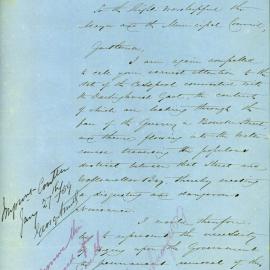 To the Right Worshipful the
Mayor and the Municipal Council,
Gentlemen,
I am again compelled
to call your earnest attention to the
state of the Cesspool connected with
the Darlinghurst Gaol, the contents
of which are leading through the
pan of the Quarry in Bourke Street
and thence flowing into the water
course traversing the populous
district between that Street and
Woolloomooloo Bay, thereby creating
a disgusting and dangerous
nuisance.
I would therefore
represent the necessity
of urging upon the Government
the permanent removal of this
Improve Comttee
Jany 27